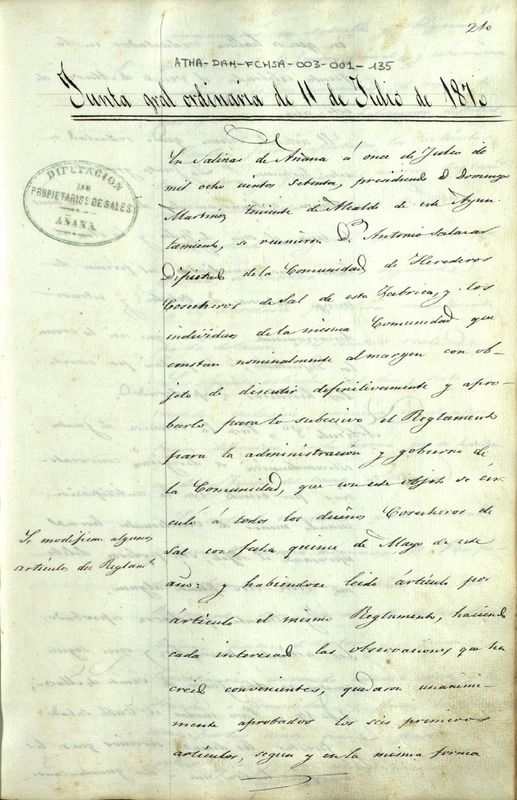 210
ATHA-DAH-FCHSA-003-001-135
Junta gral ordinária de 11 de Julio de 1870
En Salinas de Añana á once de Julio de
mil ocho cientos setenta, presidiendo D. Domingo
Martinez teniente de Alcalde de este Ayun
tamiento, se reunieron D. Antonio Salazar
Diputado de la Comunidad de Herederos
Cosecheros de Sal de esta Fabrica, y los
individuos de la misma Comunidad que
constan nominalmente al margen con ob-
jeto de discutir definitivamente y apro-
barlo para lo subcesivo el Reglamento
para la administración y gobierno de
la Comunidad, que con este objeto se cir-
culó á todos los dueños Cosecheros de
Sal con fecha quince de Mayo de este
año: y habiendose leido artículo por
artículo el mismo Reglamento, haciendo
cada interesado las observaciones que ha
creido convenientes, quedaron unanime-
mente aprobados los seis primeros
artículos, segun y en la misma forma
DIPUTACION
DE
PROPIETARIOS DE SALES
AÑANA
Se modifican algunos
artículos del Reglamto